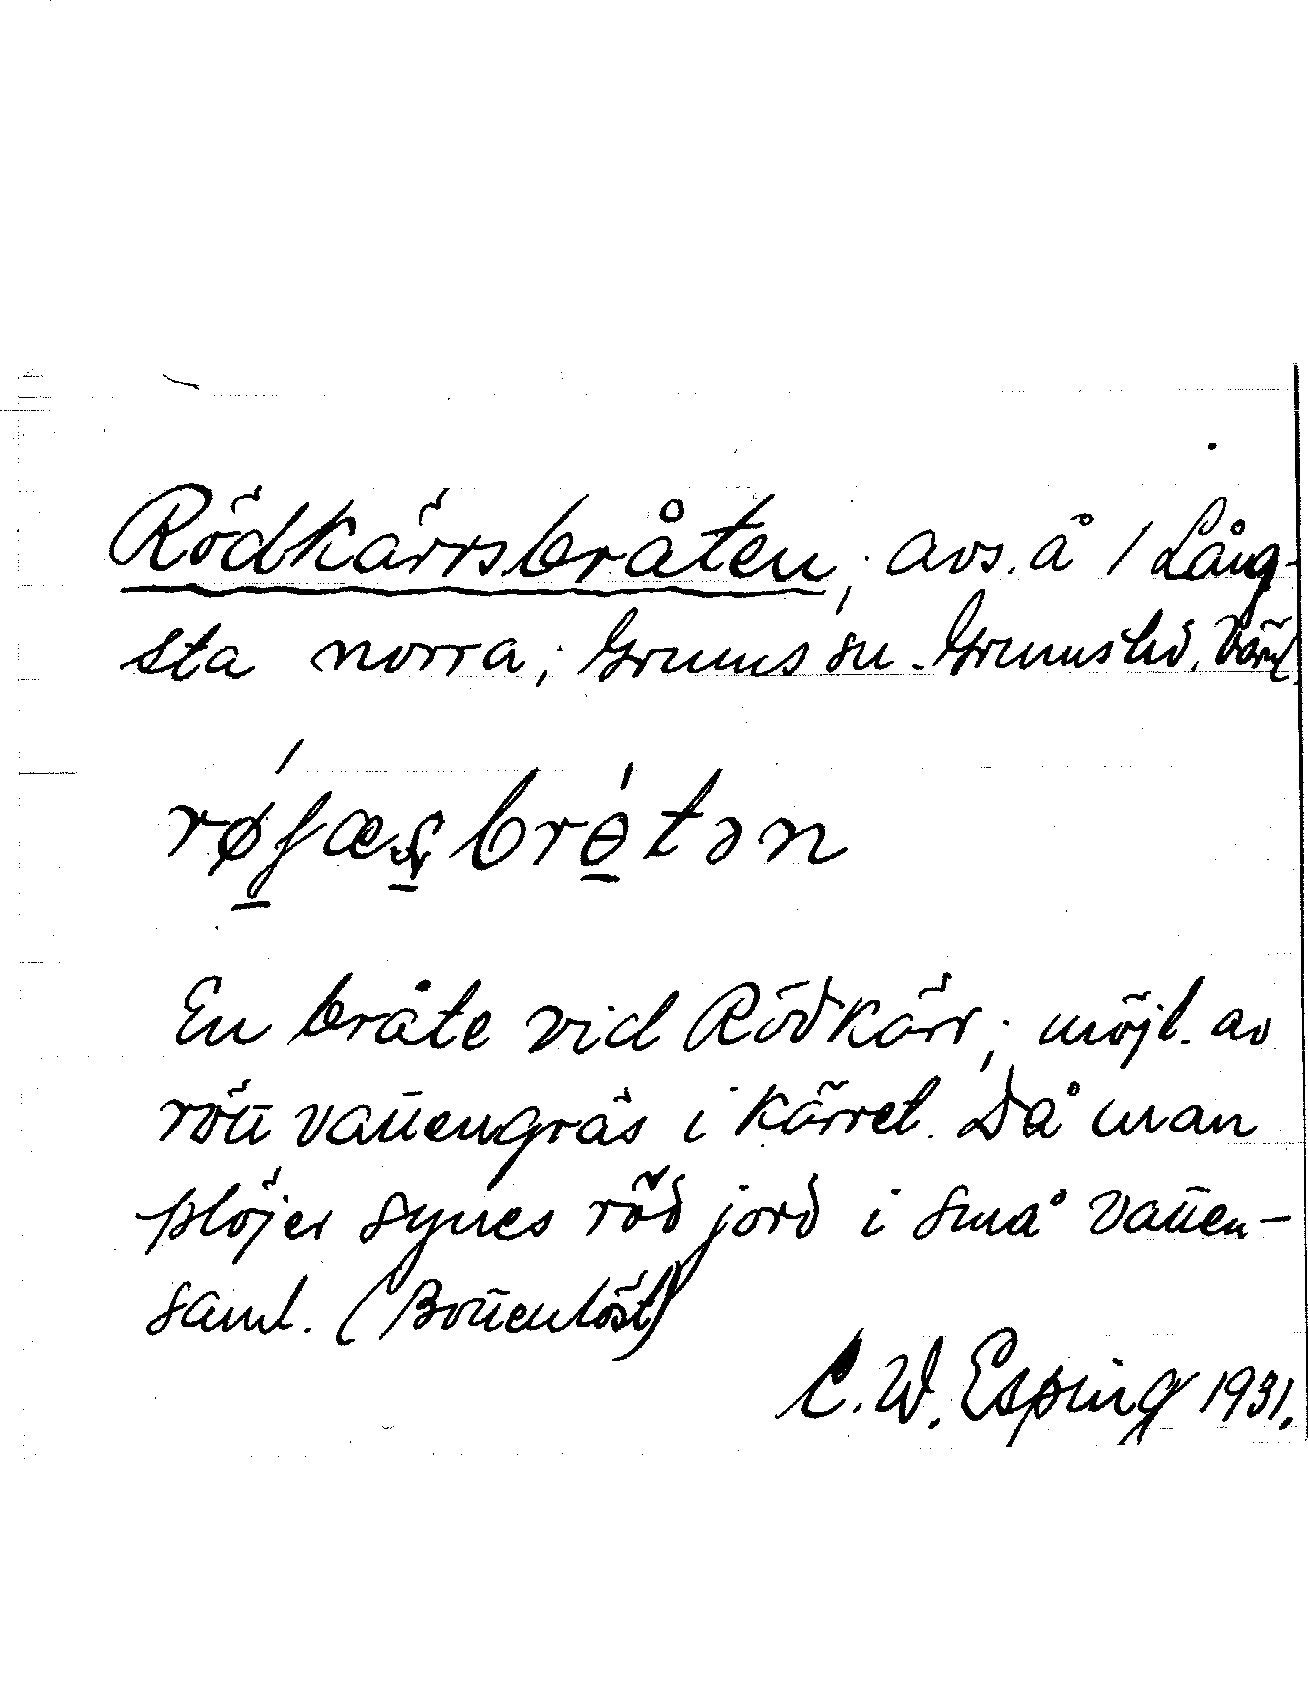 Rödkärrsbråten; avs. å 1 Lång-
sta norra; Grums sn. Grums hd, Värml.
røʃæʂbrɵ́tən
En bråte vid Rödkärr; möjl. av
rött vattengräs i kärret. Då man
plöjer synes röd jord i små vatten-
saml. (Bottenlöst)
C. W. Esping 1931.